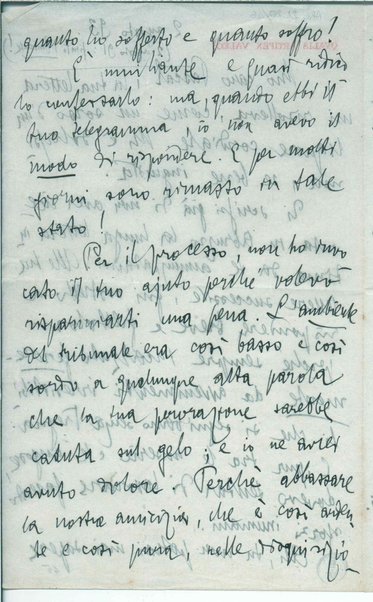 quanto ho sofferto e quanto soffro!
È umiliante e quasi ridico
lo confessarlo: ma, quando ebbi il
tuo telegramma, io non avevo il
modo di rispondere. E per molti
giorni sono rimasto in tale
stato,
Per il processo, non ho invo
cato il tuo ajuto perché volevo
risparmiarti una pena. L'ambiente
del tribunale era così basso e così
sordo a qualunque alta parola
che la tua perorazione sarebbe
caduta sul gelo; e io ne avrei
avuto dolore. Perchè abbassare
la nostra amicizia, che è così arden
te e così pura, nelle disquisizio